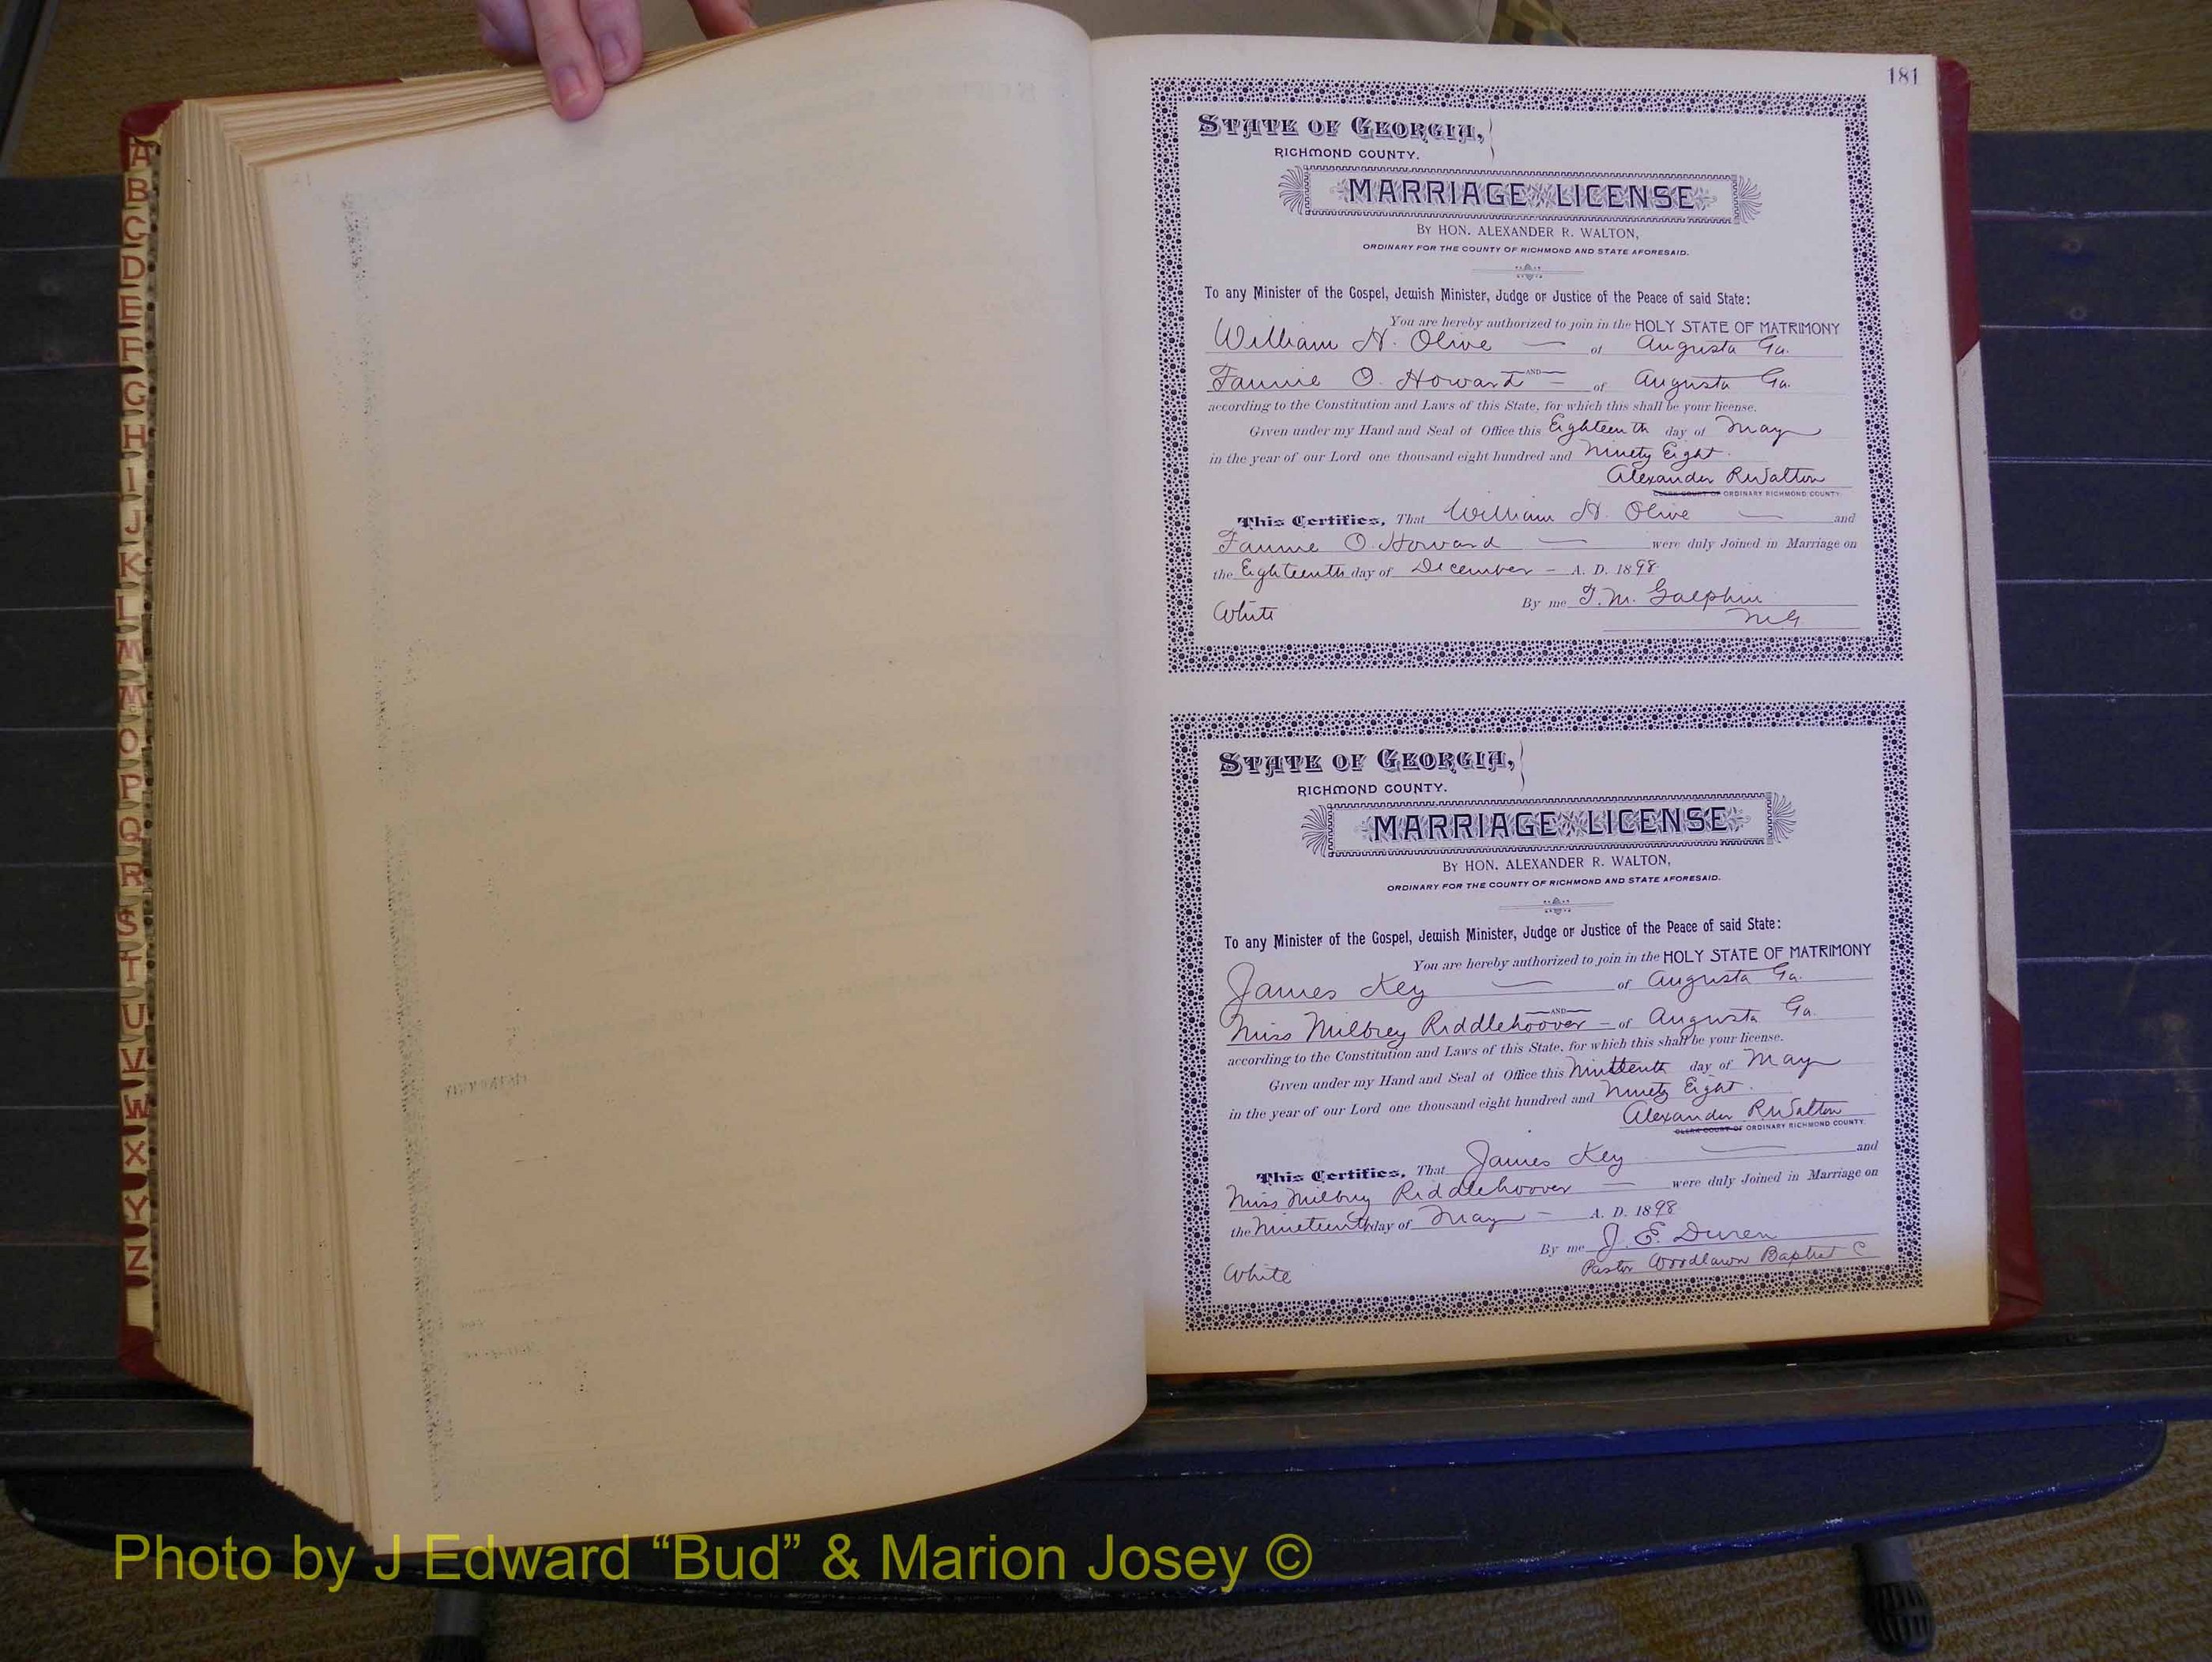 A
B
C
D
E
F
G
H
I
J
K
L
M
M
O
P
Q
R
S
T
U
V
W
X
Y
Z
181
STATE OF GEORGIA,
RICHMOND COUNTY.
MARRIAGE LICENSE
BY HON. ALEXANDER R. WALTON,
ORDINARY FOR THE COUNTY OF RICHMOND AND STATE AFORESAID.
To any Minister of the Gospel, Jewish Minister, Judge or Justice of the Peace of said State:
You are hereby authorized to join in the HOLY STATE OF MATRIMONY
William H. Olive — of Augusta Ga.
AND
Fannie O. Howard — of Augusta Ga.
according to the Constitution and Laws of this State, for which this shall be your license.
Given under my Hand and Seal of Office this Eighteenth day of May
in the year of our Lord one thousand eight hundred and Ninety Eight.
Alexander R Walton
CLERK COURT OF ORDINARY RICHMOND COUNTY.
This Certifies, That William H. Olive — and
Fannie O. Howard — were duly Joined in Marriage on
the Eighteenth day of December — A. D. 1898
By me T. M. Galphin
White
MG
STATE OF GEORGIA,
RICHMOND COUNTY.
MARRIAGE LICENSE
BY HON. ALEXANDER R. WALTON,
ORDINARY FOR THE COUNTY OF RICHMOND AND STATE AFORESAID.
To any Minister of the Gospel, Jewish Minister, Judge or Justice of the Peace of said State:
You are hereby authorized to join in the HOLY STATE OF MATRIMONY
James Key — of Augusta Ga.
AND
Miss Milbrey Riddlehoover — of Augusta Ga.
according to the Constitution and Laws of this State, for which this shall be your license.
Given under my Hand and Seal of Office this Nintteenth day of May
in the year of our Lord one thousand eight hundred and Ninety Eight.
Alexander R Walton
CLERK COURT OF ORDINARY RICHMOND COUNTY.
This Certifies, That James Key — and
Miss Milbrey Riddlehoover — were duly Joined in Marriage on
the Nineteenth day of May — A. D. 1898
By me J. E. Duren
Pastor Woodlawn Baptist C
White
Photo by J Edward “Bud” & Marion Josey ©